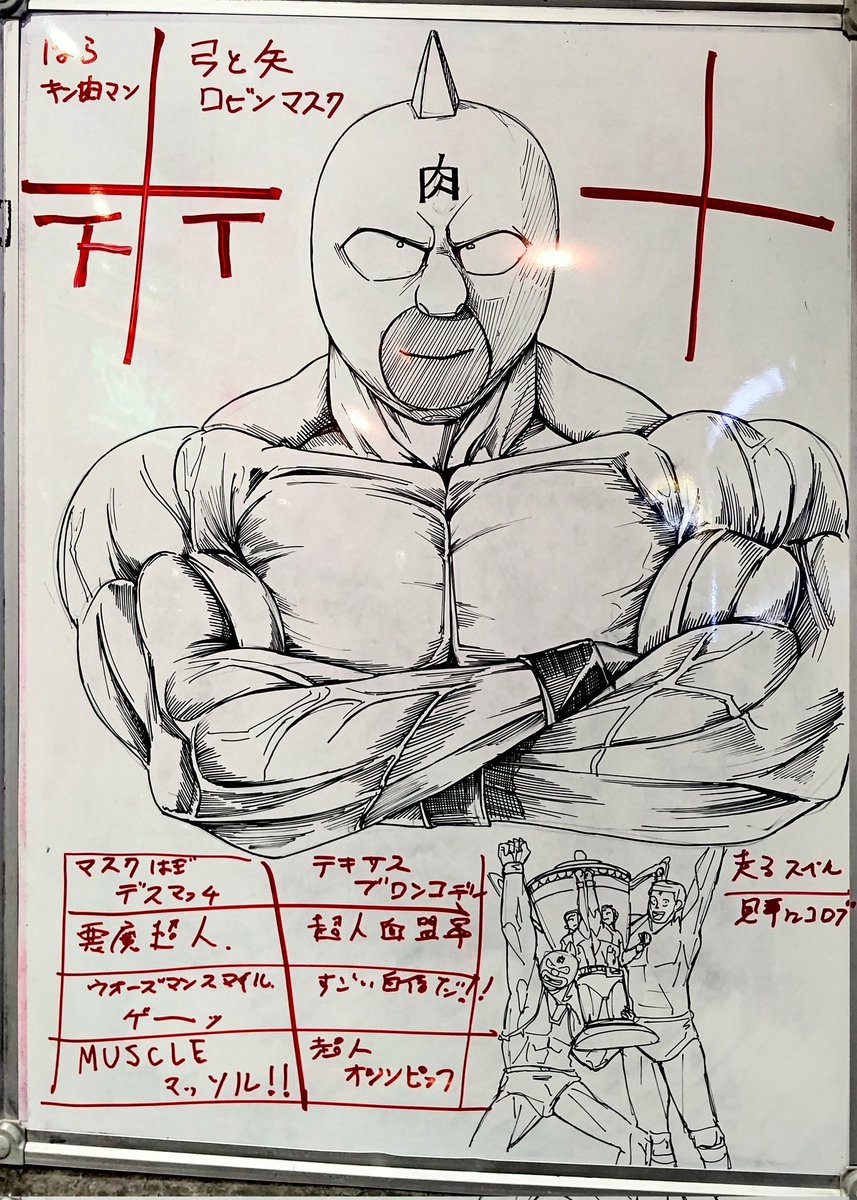 ほら
キン肉マン
弓と矢
ロビンマスク
肉
下 T
マスクはぎ
デスマッチ
テキサス
ブロンコデル
悪魔超人.
超人血盟軍
ウォーズマンスマイル.
ゲーッ
すごい自信だ!!
MUSCLE
マッソル!!
超人
オリンピック
走るスペル
見事にコロブ